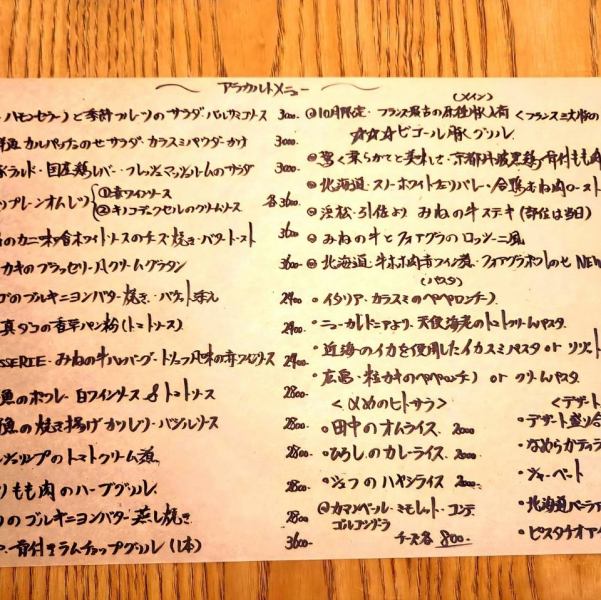 アラカルトメニュー
ハモンセラーノ)と季節フルーツのサラダ・バルサミコソース 3000
カルパッチョのせサラダ・カラスミパウダーかけ 3000
国産鶏レバー・フレッシュマッシュルームのサラダ 3000
プレーンオムレツ ①赤ワインソース
②キノコデュクセルのクリームソース 各3600
のカニ味噌ホワイトソースのチーズ焼き・バタートースト 3600
カキのブラッセリー風クリームグラタン 3600
のブルギニヨンバター焼き・バケット添え 2400
真ダコの香草パン粉(トマトソース) 2400
SSERIE・みねの牛ハンバーグ・トリュフ風味の赤ワインソース 2400
魚のポワレ 白ワインソース & トマトソース 2800
魚の焼き揚げカツレツ・バジルソース 2800
のトマトクリーム煮 2800
もも肉のハーブグリル 2800
のブルギニヨンバター蒸し焼き 2800
骨付きラムチョップグリル(1本) 3600
(メイン)
◎10月限定・フランス最古の原種豚入荷 <フランス三大豚の
☆☆☆ビゴール豚グリル
◎驚く柔らかさと美味しさ・京都丹波黒鶏骨付もも肉
◎北海道・スノーホワイトチェリバレー・合鴨むね肉ロースト
◎浜松・引佐より みねの牛ステキ(部位は当日)
◎みねの牛とフォアグラのロッシーニ風
◎北海道・牛ホホ肉赤ワイン煮・フォアグラポワレのせ NEW
(パスタ)
・イタリア・カラスミのペペロンチーノ
・ニューカレドニアより・天使海老のトマトクリームパスタ
・近海のイカを使用したイカスミパスタ or リゾット
・広島・粒カキのペペロンチーノ or クリームパスタ
<〆めのヒトサラ>
・田中のオムライス 2000
・ひろしのカレーライス 2000
・シェフのハヤシライス 2000
◎カマンベール・ミモレット・コンテ
ゴルゴンゾーラ
チーズ各 800
<デザート
・デザート盛り合
・なめらかティラ
・シャーベット
・北海道バニラア
・ピスタチオアイ